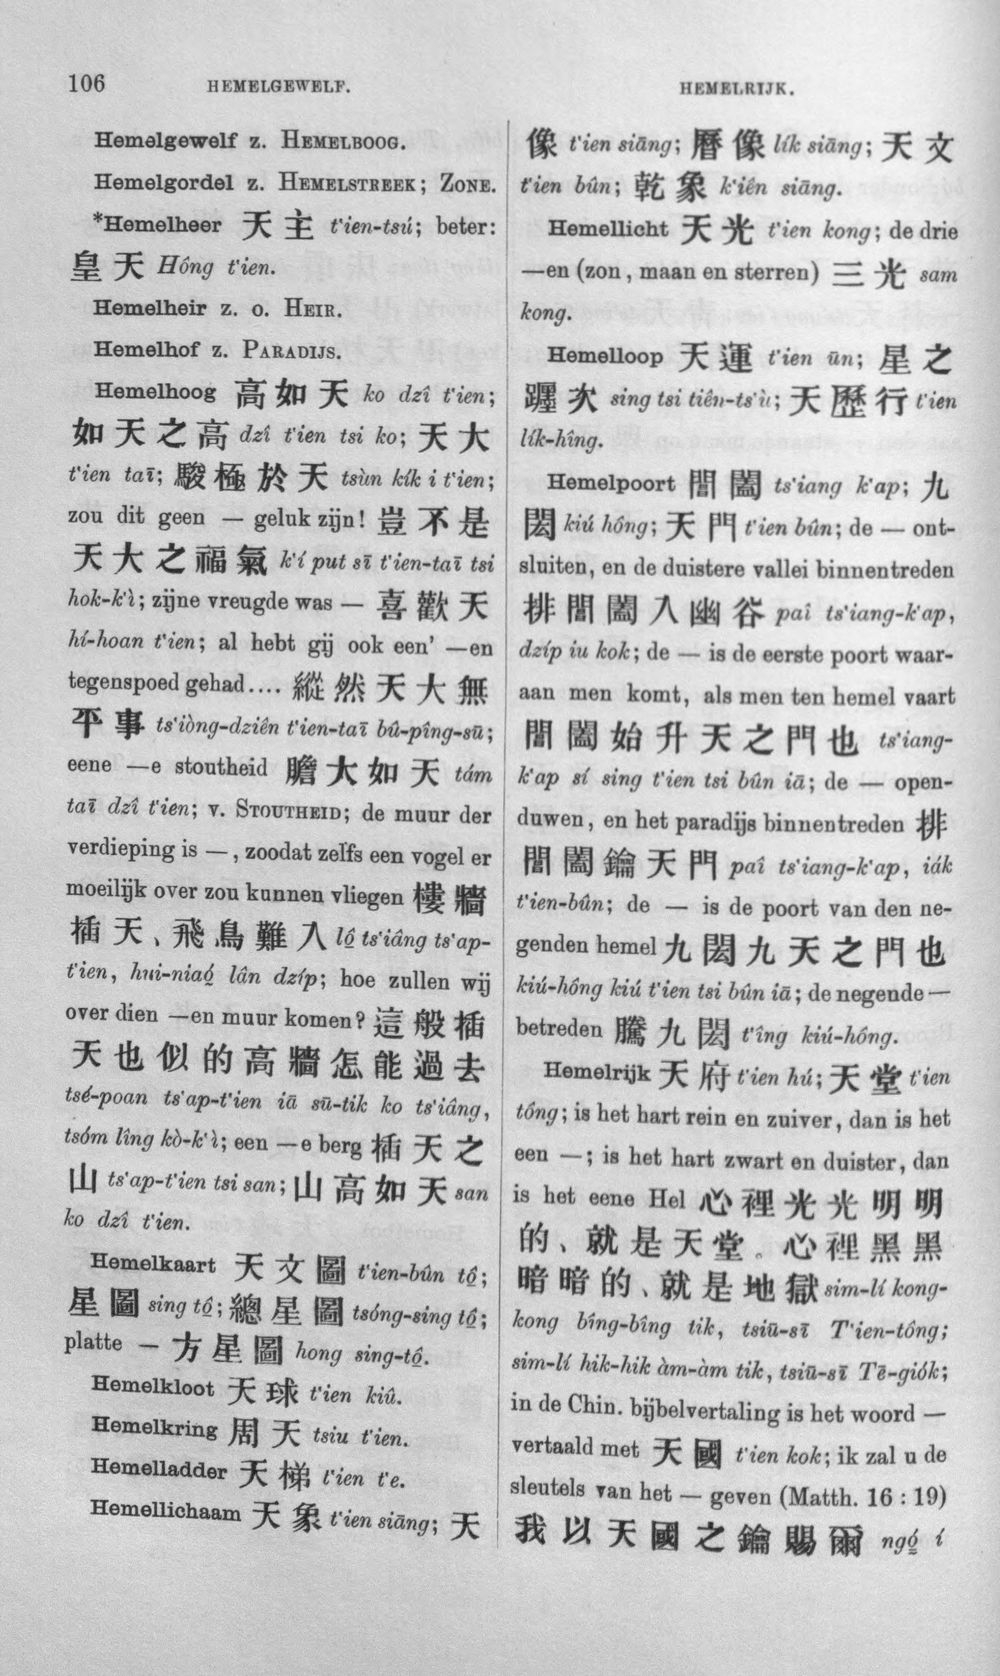 106 HEMELGEWELF. HEMELRIJK.
Hemelgewelf z. HEMELBOOG.
Hemelgordel z. HEMELSTREEK; ZONE.
*Hemelheer 天主 t'ien-tsú; beter:
皇天 Hông t'ien.
Hemelheir z. o. HEIR.
Hemelhof z. PARADIJS.
Hemelhoog 高如天 ko dzî t'ien;
如天之高 dzî t'ien tsi ko; 天大
t'ien taī; 駿極於天 tsùn kík i t'ien;
zou dit geen — geluk zijn! 豈不是
天大之福氣 k'í put sī t'ien-taī tsi
hok-k'ì; zijne vreugde was — 喜歡天
hí-hoan t'ien; al hebt gij ook een' —en
tegenspoed gehad.... 縱然天大無
平事 ts'iòng-dziên t'ien-taī bû-pîng-sū;
eene —e stoutheid 膽大如天 tám
taī dzî t'ien; v. STOUTHEID; de muur der
verdieping is —, zoodat zelfs een vogel er
moeilijk over zou kunnen vliegen 樓牆
插天、飛鳥難入 lô̤ ts'iâng ts'ap-
t'ien, hui-niaó̤ lân dzíp; hoe zullen wij
over dien —en muur komen? 這般插
天也似的高牆怎能過去
tsé-poan ts'ap-t'ien iā sū-tik ko ts'iâng,
tsóm lîng kò-k'ì; een —e berg 插天之
山 ts'ap-t'ien tsi san; 山高如天 san
ko dzî t'ien.
Hemelkaart 天文圖 t'ien-bûn tô̤;
星圖 sing tô̤; 總星圖 tsóng-sing tô̤;
platte — 方星圖 hong sing-tô̤.
Hemelkloot 天球 t'ien kiû.
Hemelkring 周天 tsiu t'ien.
Hemelladder 天梯 t'ien t'e.
Hemellichaam 天象 t'ien siāng; 天
像 t'ien siāng; 曆像 lík siāng; 天文
t'ien bûn; 乾象 k'iên siāng.
Hemellicht 天光 t'ien kong; de drie
—en (zon, maan en sterren) 三光 sam
kong.
Hemelloop 天運 t'ien ūn; 星之
躔次 sing tsi tiên-ts'ù; 天歷行 t'ien
lík-hîng.
Hemelpoort 閶闔 ts'iang k'ap; 九
閎 kiú hông; 天門 t'ien bûn; de — ont-
sluiten, en de duistere vallei binnentreden
排閶闔入幽谷 paî ts'iang-k'ap,
dzíp iu kok; de — is de eerste poort waar-
aan men komt, als men ten hemel vaart
閶闔始升天之門也 ts'iang-
k'ap sí sing t'ien tsi bûn iā; de — open-
duwen, en het paradijs binnentreden 排
閶闔鑰天門 paî ts'iang-k'ap, iák
t'ien-bûn; de — is de poort van den ne-
genden hemel 九閎九天之門也
kiú-hông kiú t'ien tsi bûn iā; de negende —
betreden 騰九閎 t'îng kiú-hông.
Hemelrijk 天府 t'ien hú; 天堂 t'ien
tông; is het hart rein en zuiver, dan is het
een —; is het hart zwart en duister, dan
is het eene Hel 心裡光光明明
的、就是天堂。心裡黑黑
暗暗的、就是地獄 sim-lí kong-
kong bîng-bîng tik, tsiū-sī T'ien-tông;
sim-lí hik-hik àm-àm tik, tsiū-sī Tē-giók;
in de Chin. bijbelvertaling is het woord —
vertaald met 天國 t'ien kok; ik zal u de
sleutels van het — geven (Matth. 16 : 19)
我以天國之鑰賜爾 ngó̤ í